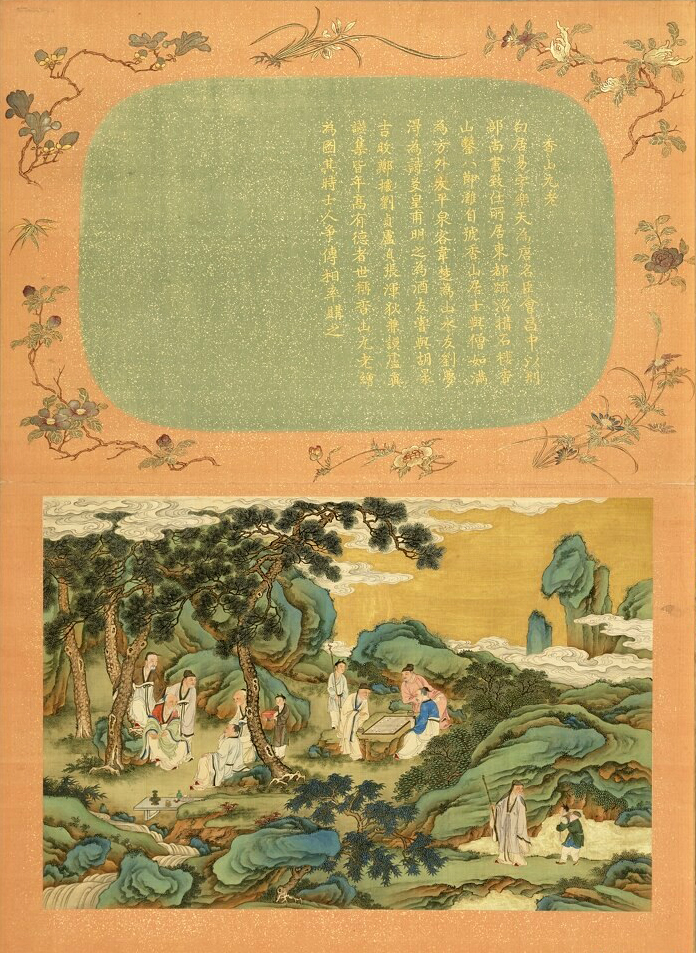 香山九老
白居易字樂天為唐名臣會昌中以刑
部尚書致仕所居東都疏沼構石樓香
山鑿八節灘自號香山居士與僧如滿
為方外友平泉客韋楚為山水友劉夢
得為詩友皇甫明之為酒友嘗與胡杲
吉旼鄭據劉貞盧貞張渾狄兼謨盧真
讌集皆年高有德者世稱香山九老繪
為圖其時士人爭傳相率購之